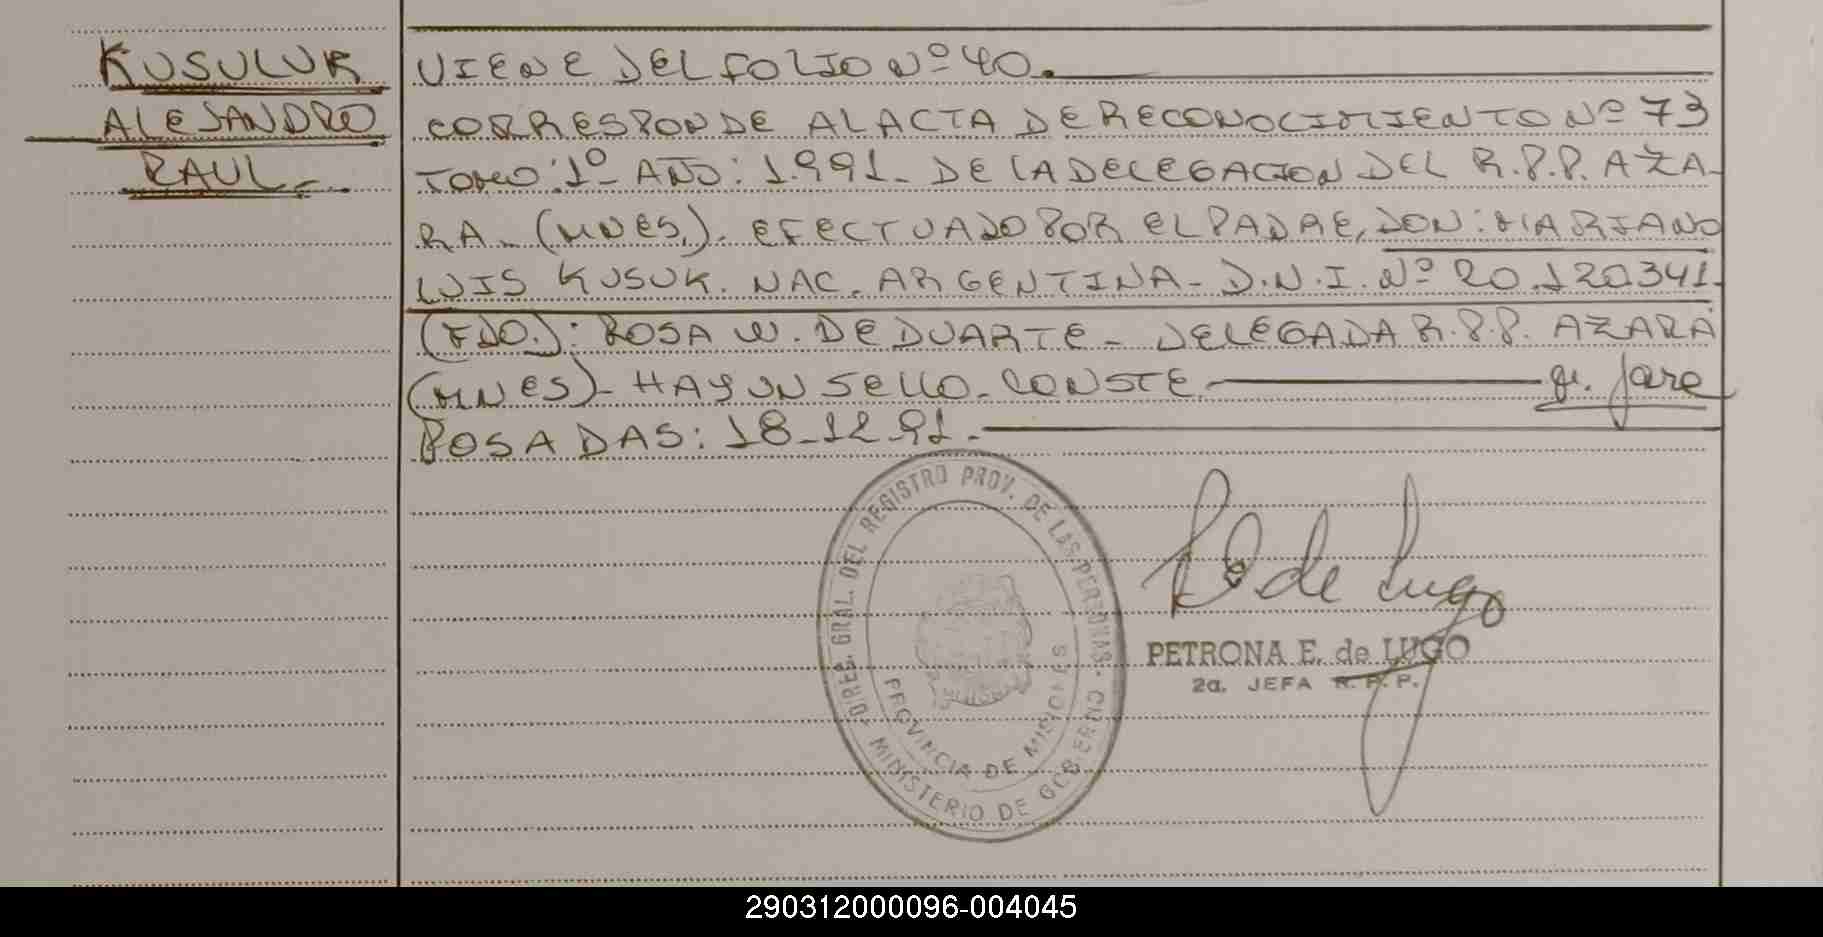 KUSULUK
ALEJANDRO
RAUL.-
VIENE DEL FOLIO Nº 40.
CORRESPONDE AL ACTA DE RECONOCIMIENTO Nº 73
TOMO: 1º- AÑO: 1.991.- DE LA DELEGACION DEL R.P.P. AZA-
RA.- (MNES.). EFECTUADO POR EL PADRE, DON: MARIANO
LUIS KUSUK. NAC. ARGENTINA- D.N.I. Nº 20.120.341.
(FDO.): ROSA W. DE DUARTE - DELEGADA R.P.P. AZARA
(MNES)- HAY UN SELLO- CONSTE.
POSADAS: 18-12-91.-
DIREC. GRAL. DEL REGISTRO PROV. DE LAS PERSONAS
MINISTERIO DE GOBIERNO
PROVINCIA DE MISIONES
de Lugo
PETRONA E. de LUGO
2a. JEFA R. P. P.
290312000096-004045